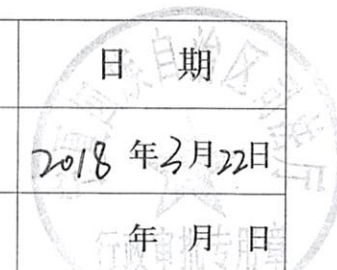 日 期
2018 年3月22日
年 月 日
自治区司法厅
行政审批专用章